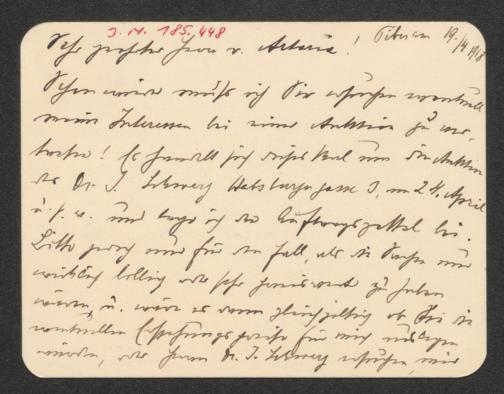 J. N. 185.448
Sehr geehrter Herr v. Artaria! 19./4 1918
Schon wieder muß ich Sie ersuchen eventuell
meine Interessen bei einer Auktion zu ver-
treten! Es handelt sich dieses Mal um die Auktion
des Dr. I. Schwarz Habsburgergasse 3, am 24. April
u. s. w. und lege ich die Auftragszettel bei.
Bitte jedoch nur für den Fall, als die Sachen nur
wirklich billig oder sehr preiswert zu haben
wären, u. wäre es wenn gleichgiltig ob Sie die
eventuellen Erstehungspreise für mich auslegen
würden, oder Herrn Dr. I. Schwarz ersuchen, mir